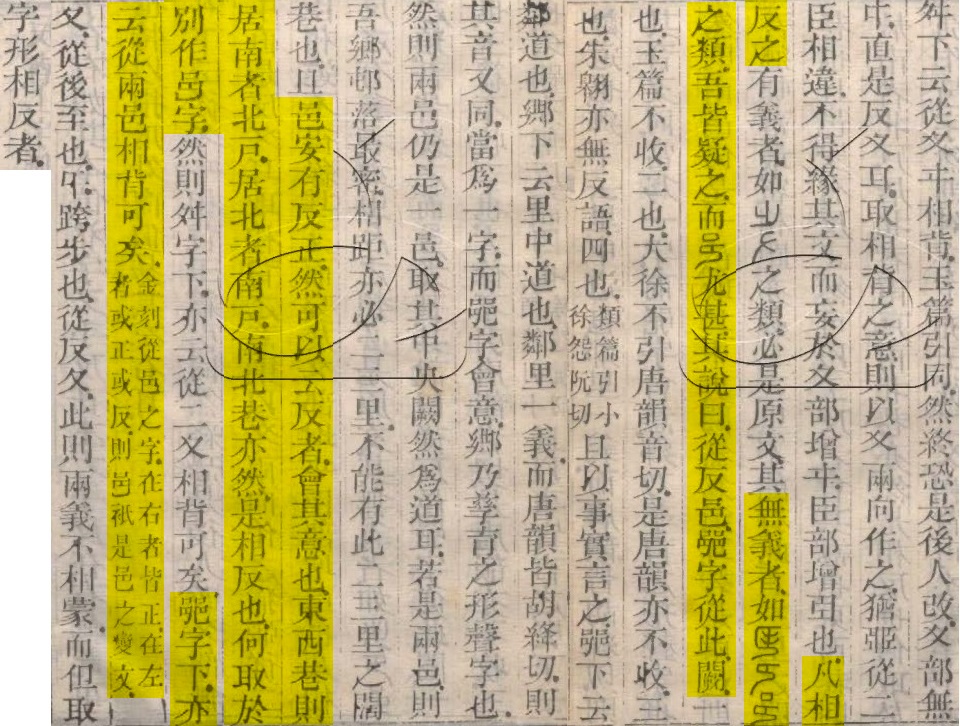 舛下云從夊㐄相背玉篇引同然終恐是後人改夊部無
㐄直是反夊耳取相背之意則以夊兩向作之猶㗊從二
臣相違不得緣其文而妄於夊部增㐄臣部增𦣩也凡相
反之有義者如止之類必是原文其無義者如
之類吾皆疑之而尤甚其說曰從反邑𨛜字從此闕一
也玉篇不收二也大徐不引唐韻音切是唐韻亦不收三
也朱翱亦無反語四也類篇引小徐怨阮切且以事實言之𨛜下云
鄰道也鄉下云里中道也鄰里一義而唐韻皆胡絳切則
其音又同當爲一字而𨛜字會意鄉乃孳育之形聲字也
然則兩邑仍是一邑取其中央闕然爲道耳若是兩邑則
吾鄉邨落最密相距亦必二三里不能有此二三里之闊
巷也且邑安有反正然可以云反者會其意也東西巷則
居南者北戶居北者南戶南北巷亦然是相反也何取於
別作邑字然則舛字下亦云從二夊相背可矣𨛜字下亦
云從兩邑相背可矣金刻從邑之字在右者皆正在左者或正或反則邑祇是邑之變文
夊從後至也㐄跨步也從反夊此則兩義不相蒙而但取
字形相反者